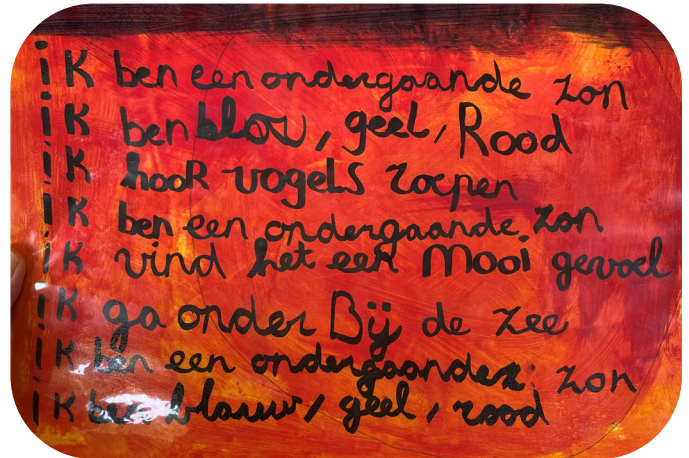 ik ben een ondergaande zon
ik ben blou, geel, Rood
ik hooR vogeLS roepen
ik ben een ondergaande zon
ik vind het een Mooi gevoel
ik ga onder Bij de zee
ik ben een ondergaande zon
ik ben blauw, geel, rood